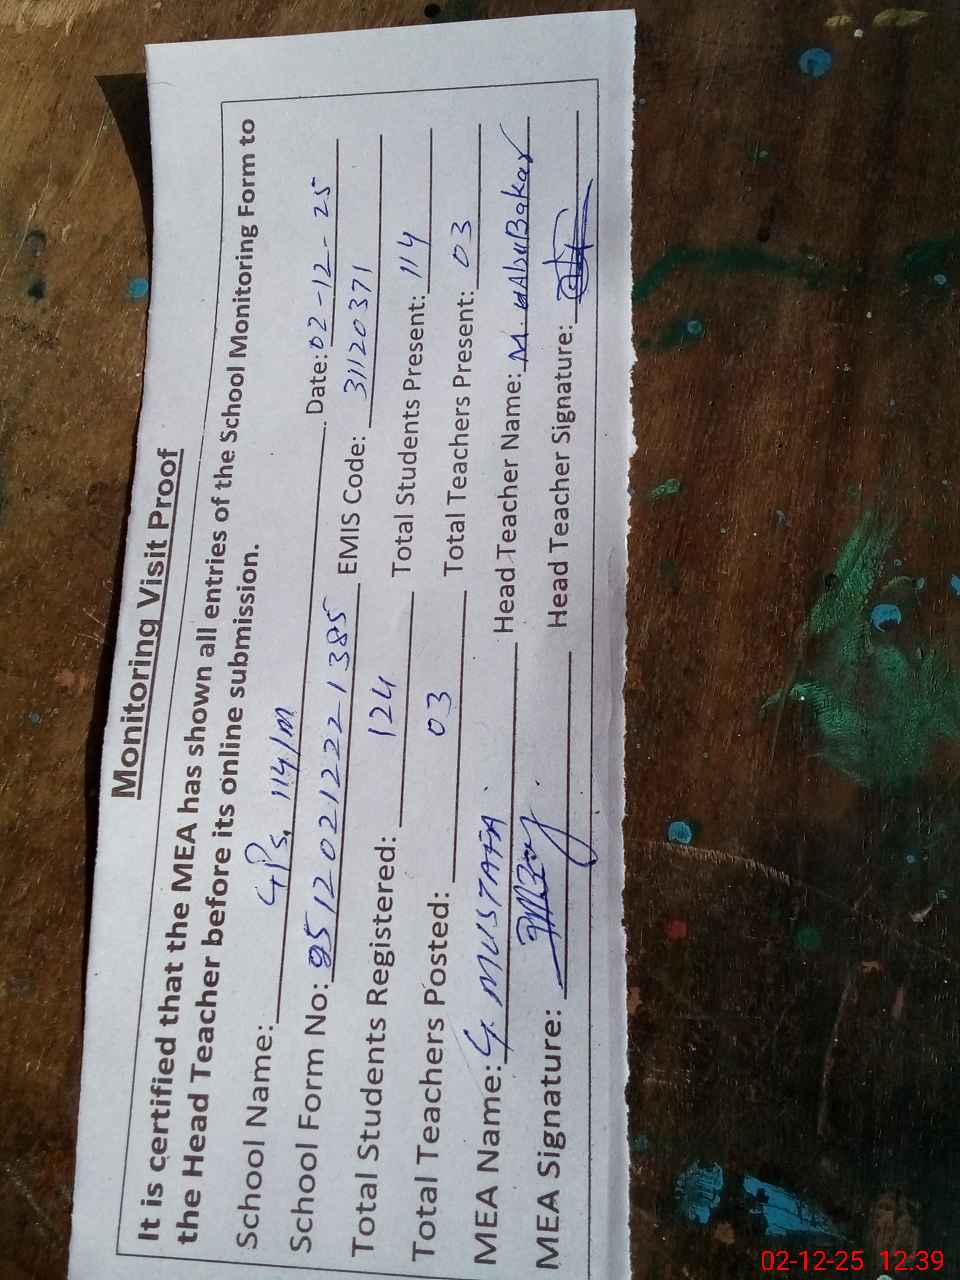 Monitoring Visit Proof
It is certified that the MEA has shown all entries of the School Monitoring Form to
the Head Teacher before its online submission.
School Name: GPS, 114/M Date: 02-12-25
School Form No: 95120212221385 EMIS Code: 31120371
Total Students Registered: 124 Total Students Present: 114
Total Teachers Posted: 03 Total Teachers Present: 03
MEA Name: G. MUSTAFA. Head Teacher Name: M. AbuBakar
MEA Signature: Head Teacher Signature:
02-12-25 12:39